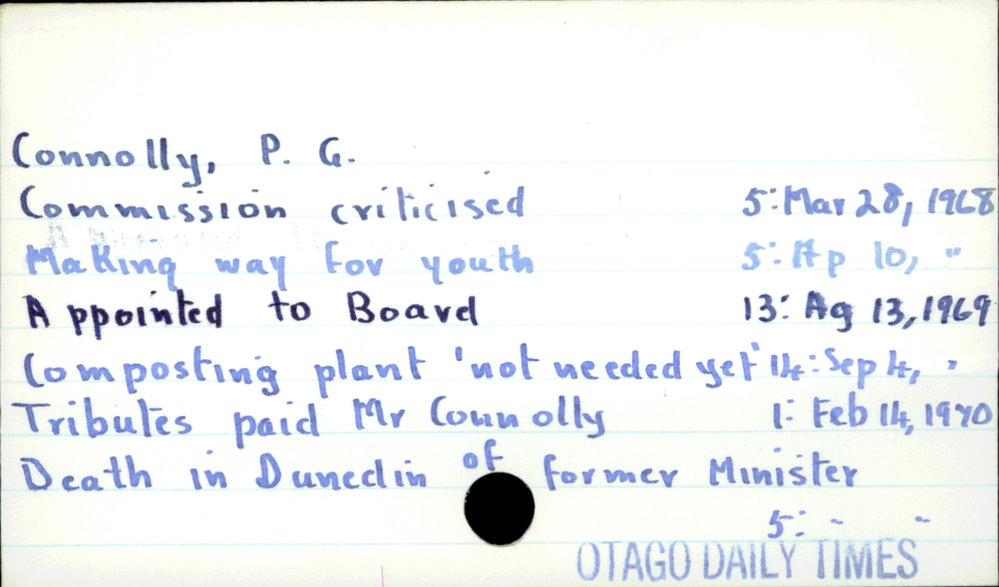 Connolly, P. G.
Commission criticised 5: Mar 28, 1968
Making way for youth 5: Ap 10, "
Appointed to Board 13: Ag 13, 1969
Composting plant 'not needed yet' 14: Sep 4, "
Tributes paid Mr Connolly 1: Feb 14, 1970
Death in Dunedin of former Minister
5: " "
OTAGO DAILY TIMES